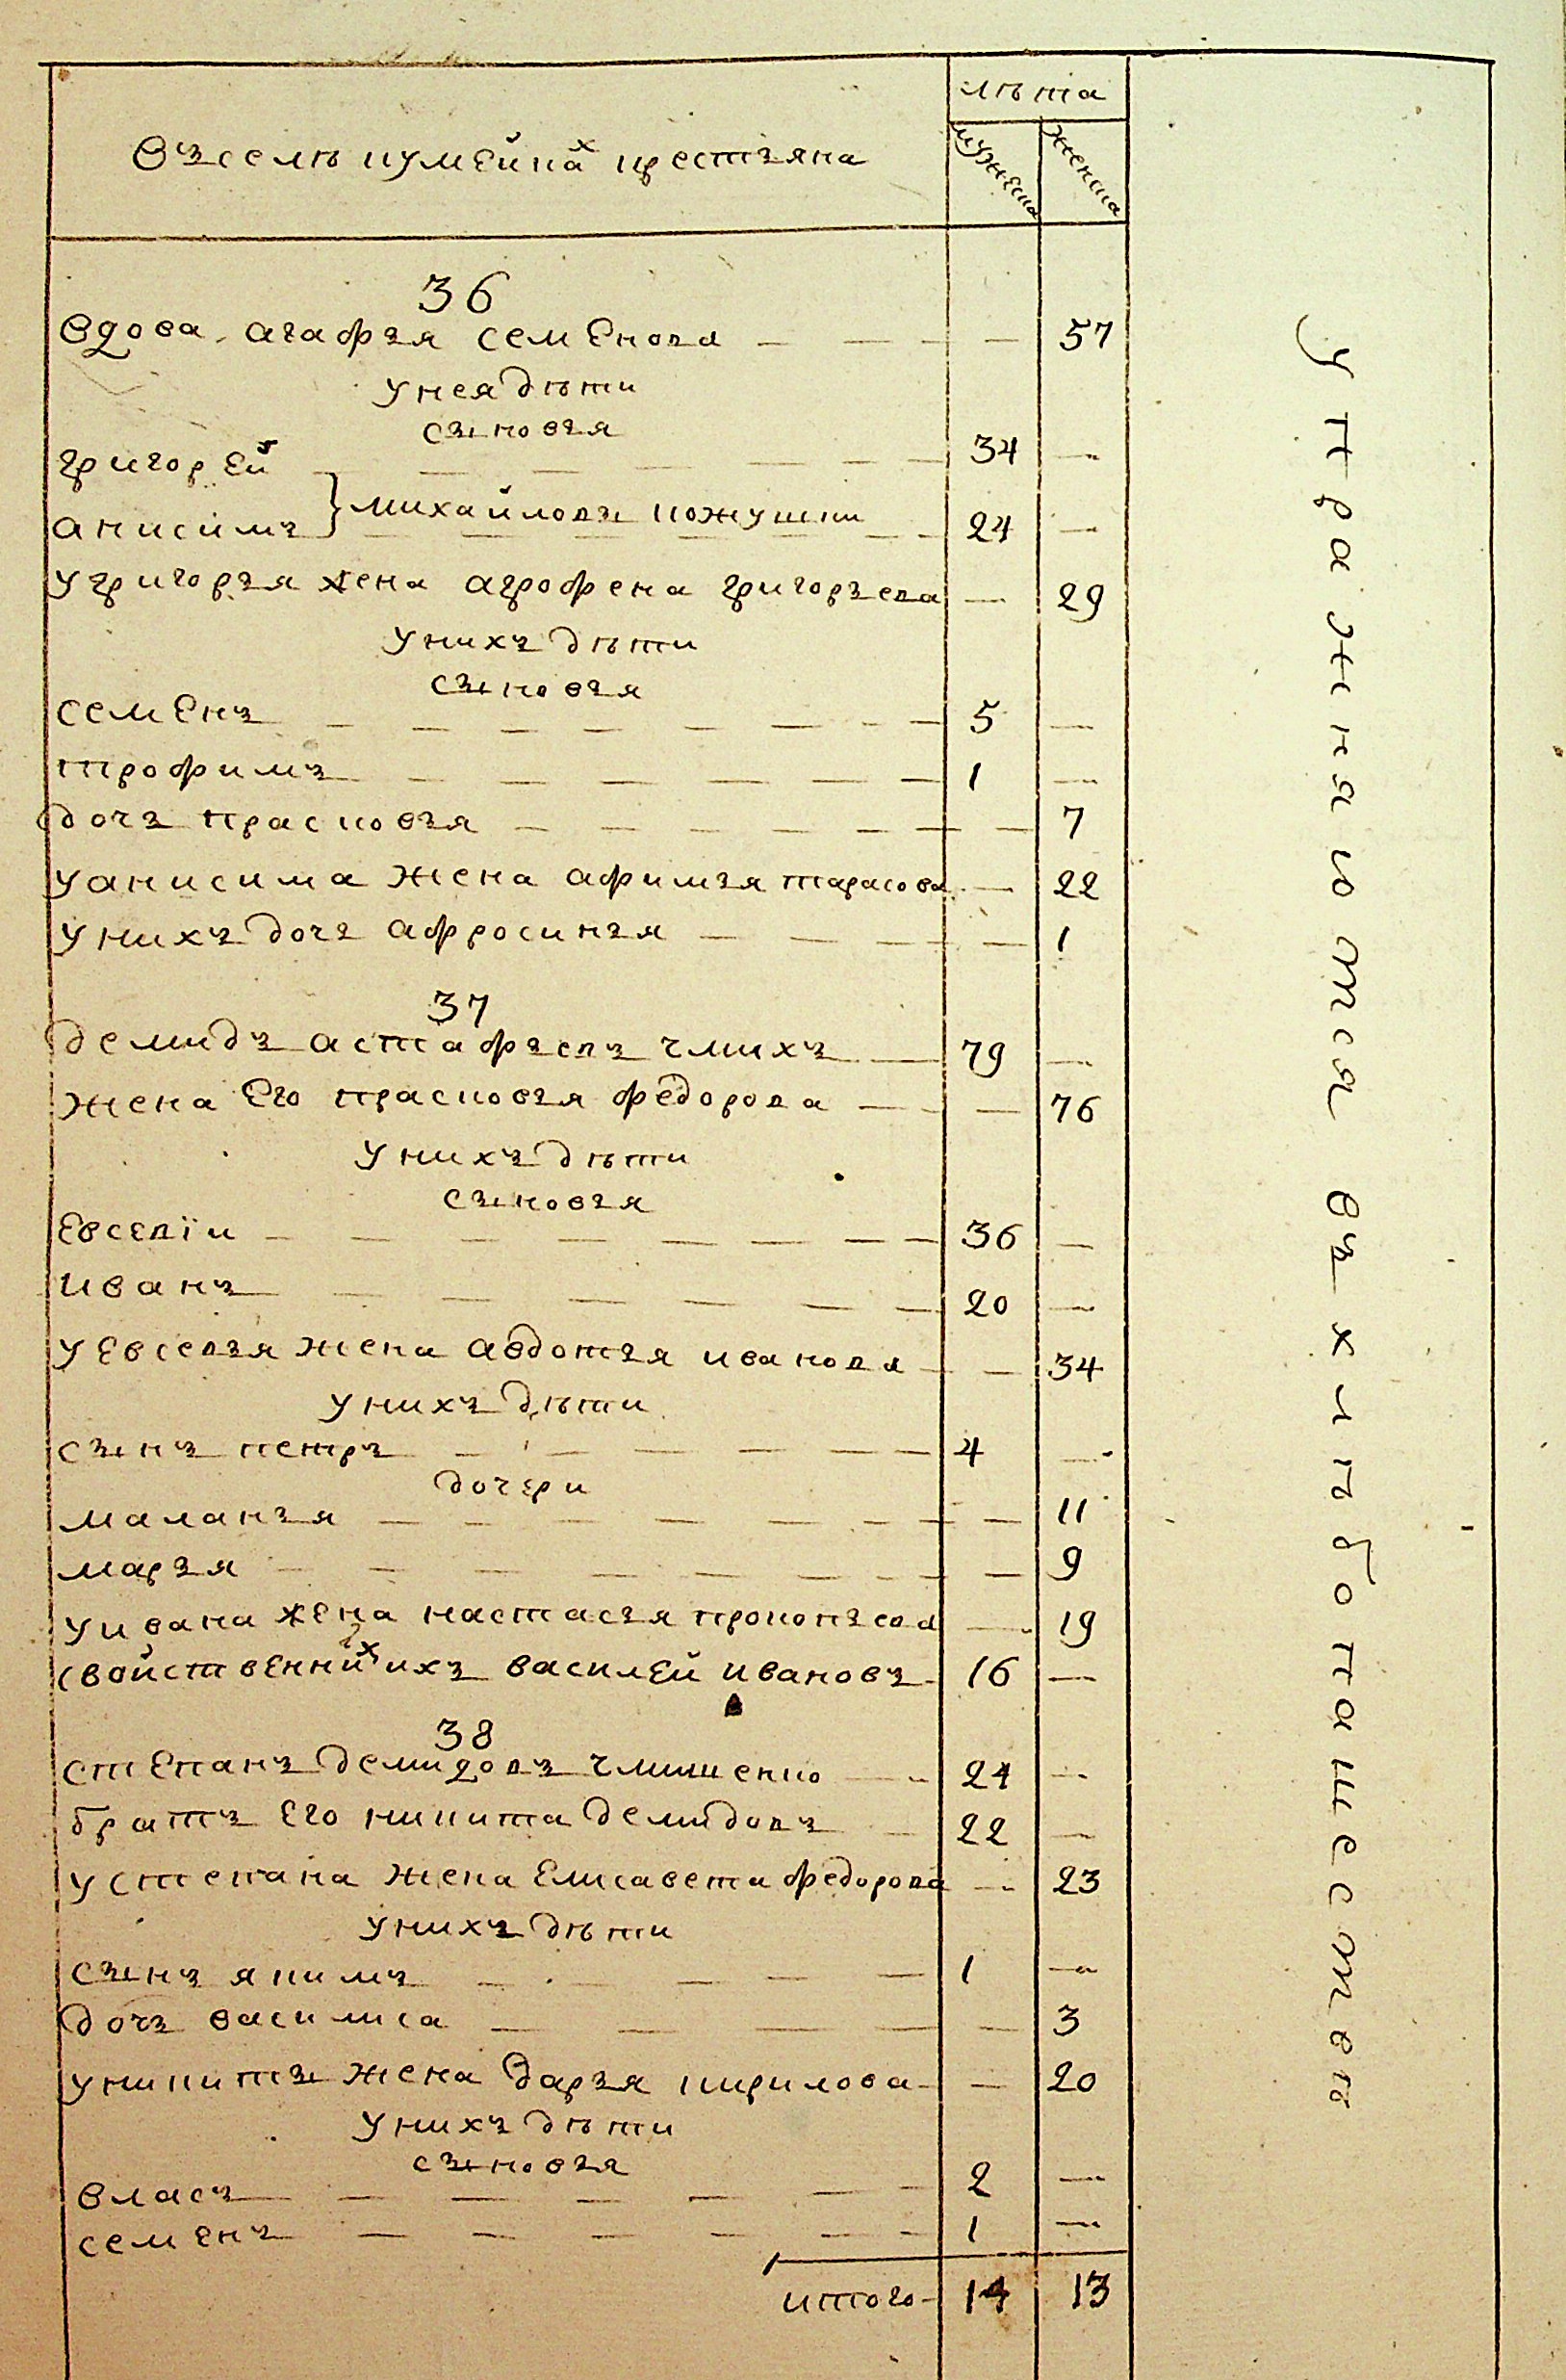 лѣта
Въ селѣ кумейкахъ крестьяна
мужеска
женска
36
Вдова агафья семенова — — — — 57
У нея дѣти
сыновья
григорей — — — — — — 34 —
анисимъ } михайловы кожушки 24 —
У григорья жена агрофена григорьева — 29
У нихъ дѣти
сыновья
семенъ — — — — — — — 5 —
трофимъ — — — — — — 1 —
дочь прасковья — — — — — — 7
У анисима жена афимья тарасова — 22
У нихъ дочь афросинья — — — — 1
37
демидъ астафьевъ члихъ — 79 —
жена его прасковья федорова — — 76
У нихъ дѣти
сыновья
Евсевїи — — — — — — — 36 —
иванъ — — — — — — 20 —
У Евсевья жена авдотья иванова — — 34
У нихъ дѣти
сынъ петръ — — — — — — 4 —
дочери
маланья — — — — — — — 11
марья — — — — — — — 9
У ивана жена настасья прокопьева — 19
свойственникъ ихъ василей ивановъ — 16 —
38
степанъ демидовъ члишенко — 24 —
братъ его никита демидовъ — 22 —
У степана жена Елисавета федорова — 23
У нихъ дѣти
сынъ якимъ — — — — — 1 —
дочь василиса — — — — — 3
У никиты жена дарья кирилова — — 20
У нихъ дѣти
сыновья
власъ — — — — — — 2 —
семенъ — — — — — — 1 —
итого — 14 13
Упражняются въ хлѣбопашествѣ